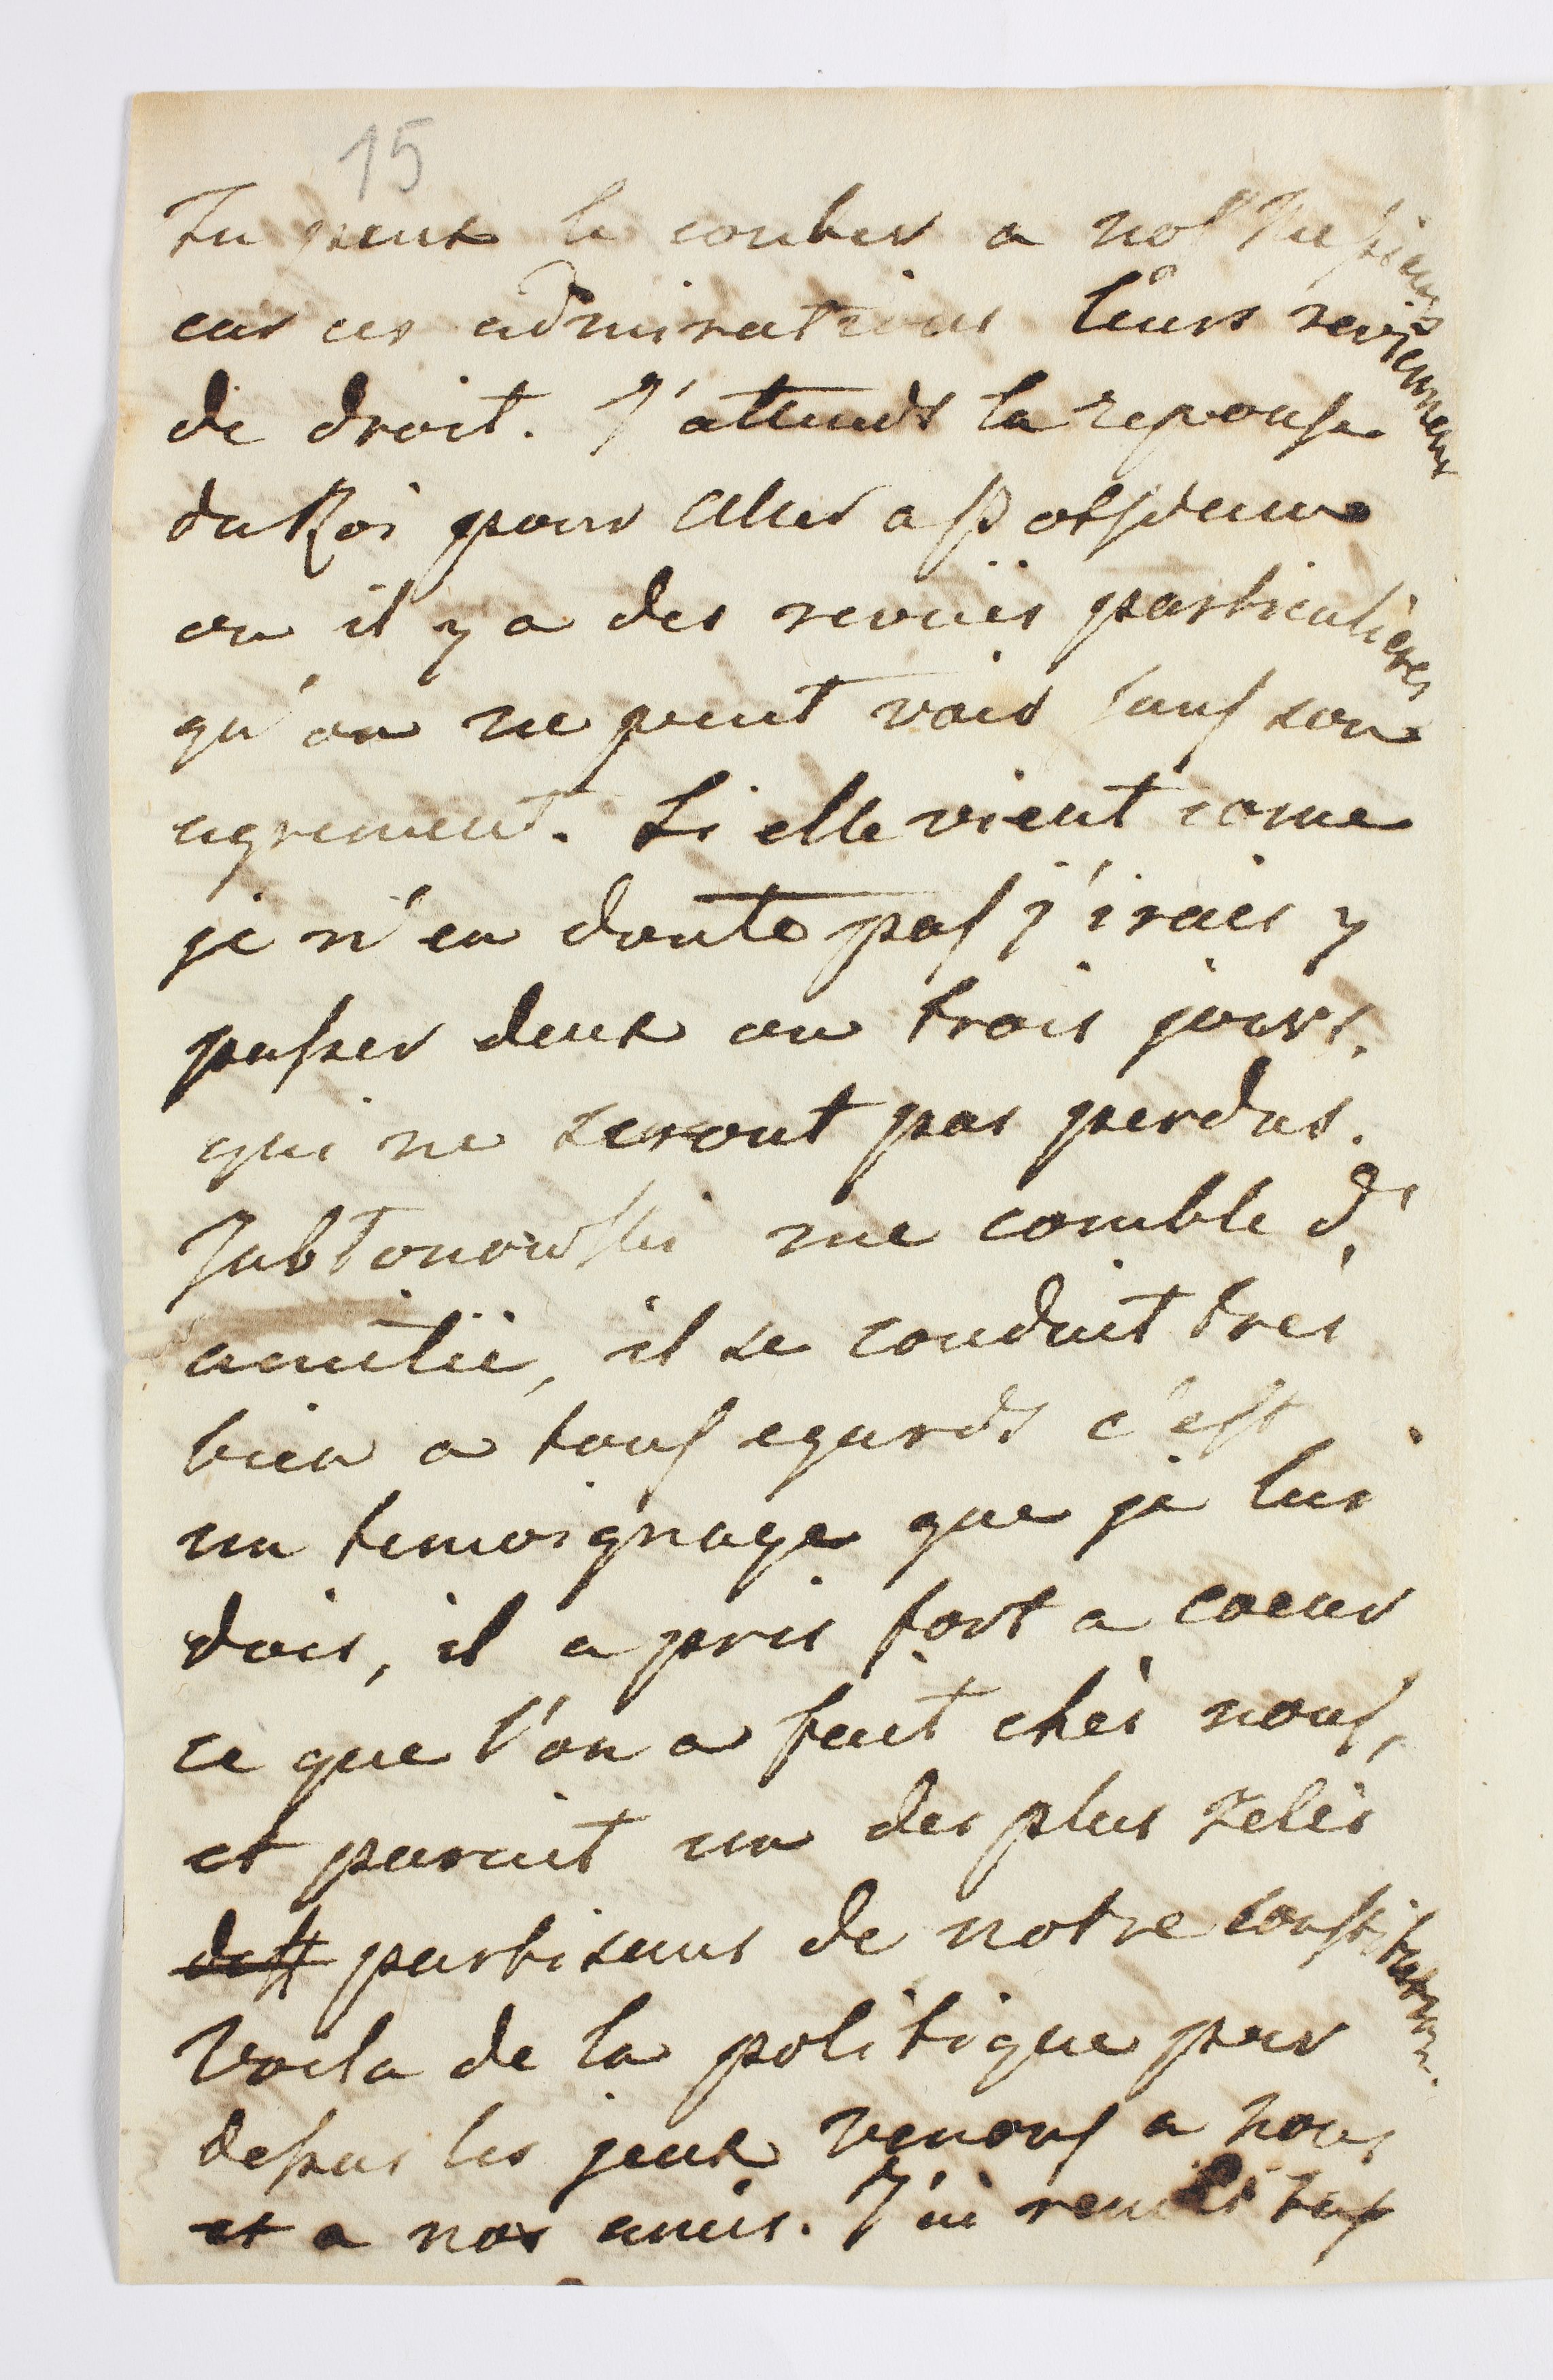 15
Tu peux le conter a nos Messieurs
car ces admirations leurs reviennent
de droit. J'attends la reponse
du Roi pour aller a Potsdam
ou il y a des revües particulieres
qu'on ne peut voir sans son
agrement. Si elle vient come
je n'en doute pas j'irais y
passer deux ou trois jours,
qui ne seront pas perdus.
Jabłonowski me comble d'
amitié, il se conduit tres
bien a tous egards c'est
un temoignage que je lui
dois, il a pris fort a coeur
ce que l'on a fait chés nous,
et parait un des plus zelés
partisans de notre constitution.
Voila de la politique par
dessus les yeux venons a nous
et a nos amis. J'ai remis